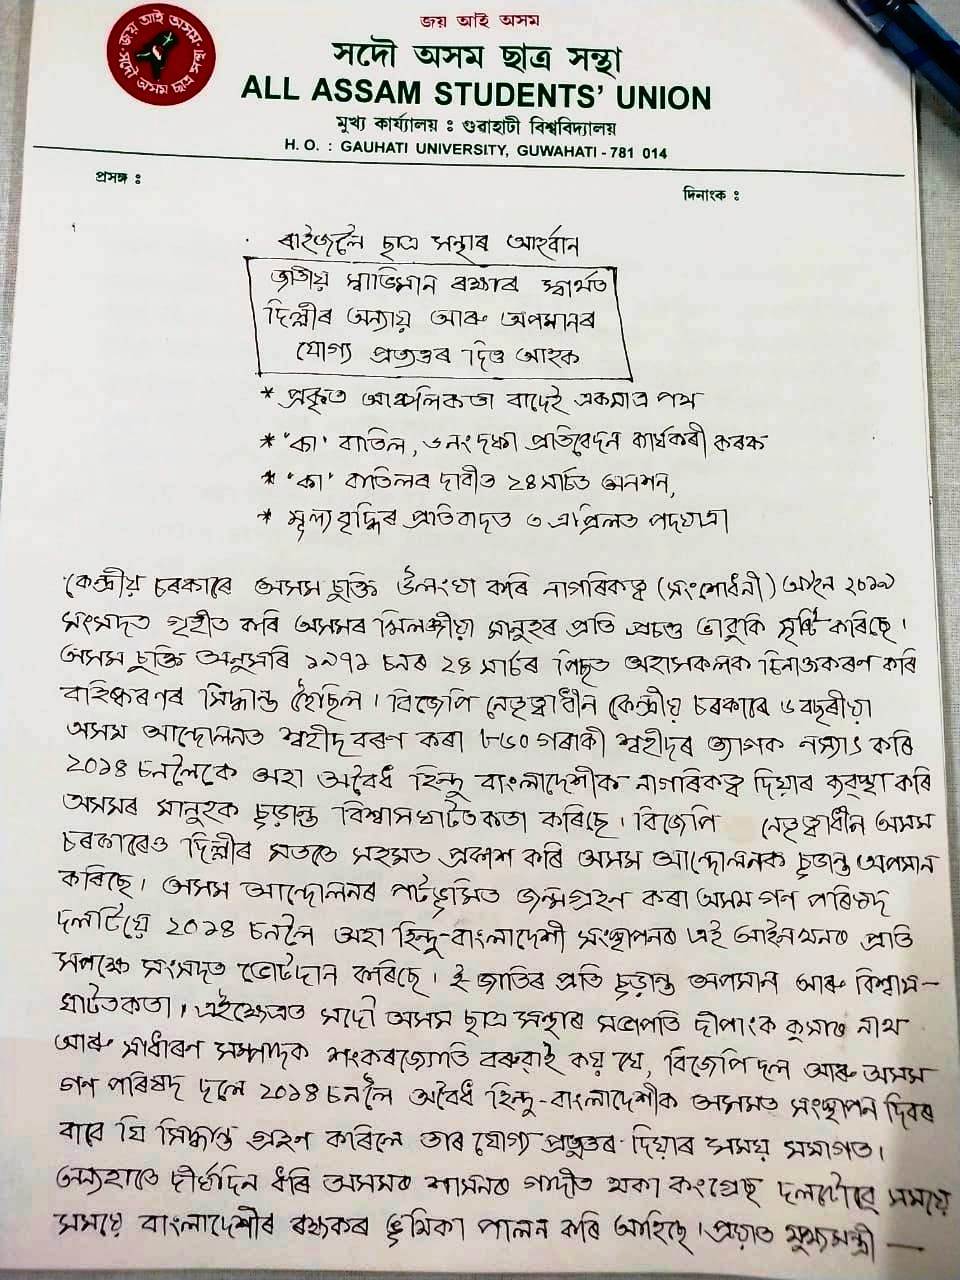 জয় আই অসম
সদৌ অসম ছাত্ৰ সন্থা
জয় আই অসম
সদৌ অসম ছাত্ৰ সন্থা
ALL ASSAM STUDENTS' UNION
মুখ্য কাৰ্য্যালয় : গুৱাহাটী বিশ্ববিদ্যালয়
H. O. : GAUHATI UNIVERSITY, GUWAHATI - 781 014
প্ৰসঙ্গ :
দিনাংক :
ৰাইজলৈ ছাত্ৰ সন্থাৰ আহবান
জাতীয় স্বাভিমান ৰক্ষাৰ স্বাৰ্থত
দিল্লীৰ অন্যায় আৰু অপমানৰ
যোগ্য প্ৰত্যুত্তৰ দিওঁ আহক
* প্ৰকৃত আঞ্চলিকতা বাদেই একমাত্ৰ পথ
* 'কা' বাতিল, ৬নং দফা প্ৰতিবেদন কাৰ্যকৰী কৰক
* 'কা' বাতিলৰ দাবীত ২৪ মাৰ্চত অনশন,
* মূল্য বৃদ্ধিৰ প্ৰতিবাদত ৩ এপ্ৰিলত পদযাত্ৰা
কেন্দ্ৰীয় চৰকাৰে অসম চুক্তি উলংঘা কৰি নাগৰিকত্ব (সংশোধনী) আইন ২০১৯
সংসদত গৃহীত কৰি অসমৰ খিলঞ্জীয়া মানুহৰ প্ৰতি প্ৰচণ্ড ভাবুকি সৃষ্টি কৰিছে।
অসম চুক্তি অনুসৰি ১৯৭১ চনৰ ২৪ মাৰ্চৰ পিছত অহাসকলক চিনাক্তকৰণ কৰি
বহিষ্কৰণৰ সিদ্ধান্ত হৈছিল। বিজেপি নেতৃত্বাধীন কেন্দ্ৰীয় চৰকাৰে ৬ বছৰীয়া
অসম আন্দোলনত শ্বহীদ বৰণ কৰা ৮৬০ গৰাকী শ্বহীদৰ ত্যাগক নস্যাৎ কৰি
২০১৪ চনলৈকে অহা অবৈধ হিন্দু বাংলাদেশীক নাগৰিকত্ব দিয়াৰ ব্যৱস্থা কৰি
অসমৰ মানুহক চূড়ান্ত বিশ্বাসঘাটতকতা কৰিছে। বিজেপি নেতৃত্বাধীন অসম
চৰকাৰেও দিল্লীৰ মততে সহমত প্ৰকাশ কৰি অসম আন্দোলনক চূড়ান্ত অপমান
কৰিছে। অসম আন্দোলনৰ পটভূমিত জন্মগ্ৰহন কৰা অসম গণ পৰিষদ
দলটিয়ে ২০১৪ চনলৈ অহা হিন্দু-বাংলাদেশী সংস্থাপনৰ এই আইনখনৰ প্ৰতি
সপক্ষে সংসদত ভোটদান কৰিছে। ই জাতিৰ প্ৰতি চূড়ান্ত অপমান আৰু বিশ্বাস-
ঘাটতকতা। এইক্ষেত্ৰত সদৌ অসম ছাত্ৰ সন্থাৰ সভাপতি দীপাংক কুমাৰ নাথ
আৰু সাধাৰণ সম্পাদক শংকৰজ্যোতি বৰুৱাই কয় যে, বিজেপি দল আৰু অসম
গণ পৰিষদ দলে ২০১৪ চনলৈ অবৈধ হিন্দু-বাংলাদেশীক অসমত সংস্থাপন দিবৰ
বাবে যি সিদ্ধান্ত গ্ৰহণ কৰিলে তাৰ যোগ্য প্ৰত্যুত্তৰ দিয়াৰ সময় সমাগত।
অন্যহাতে দীৰ্ঘদিন ধৰি অসমৰ শাসনৰ গাদীত থকা কংগ্ৰেছ দলটোৱে সময়ে
সময়ে বাংলাদেশীৰ ৰক্ষকৰ ভূমিকা পালন কৰি আহিছে। প্ৰয়াত মুখ্যমন্ত্ৰী —